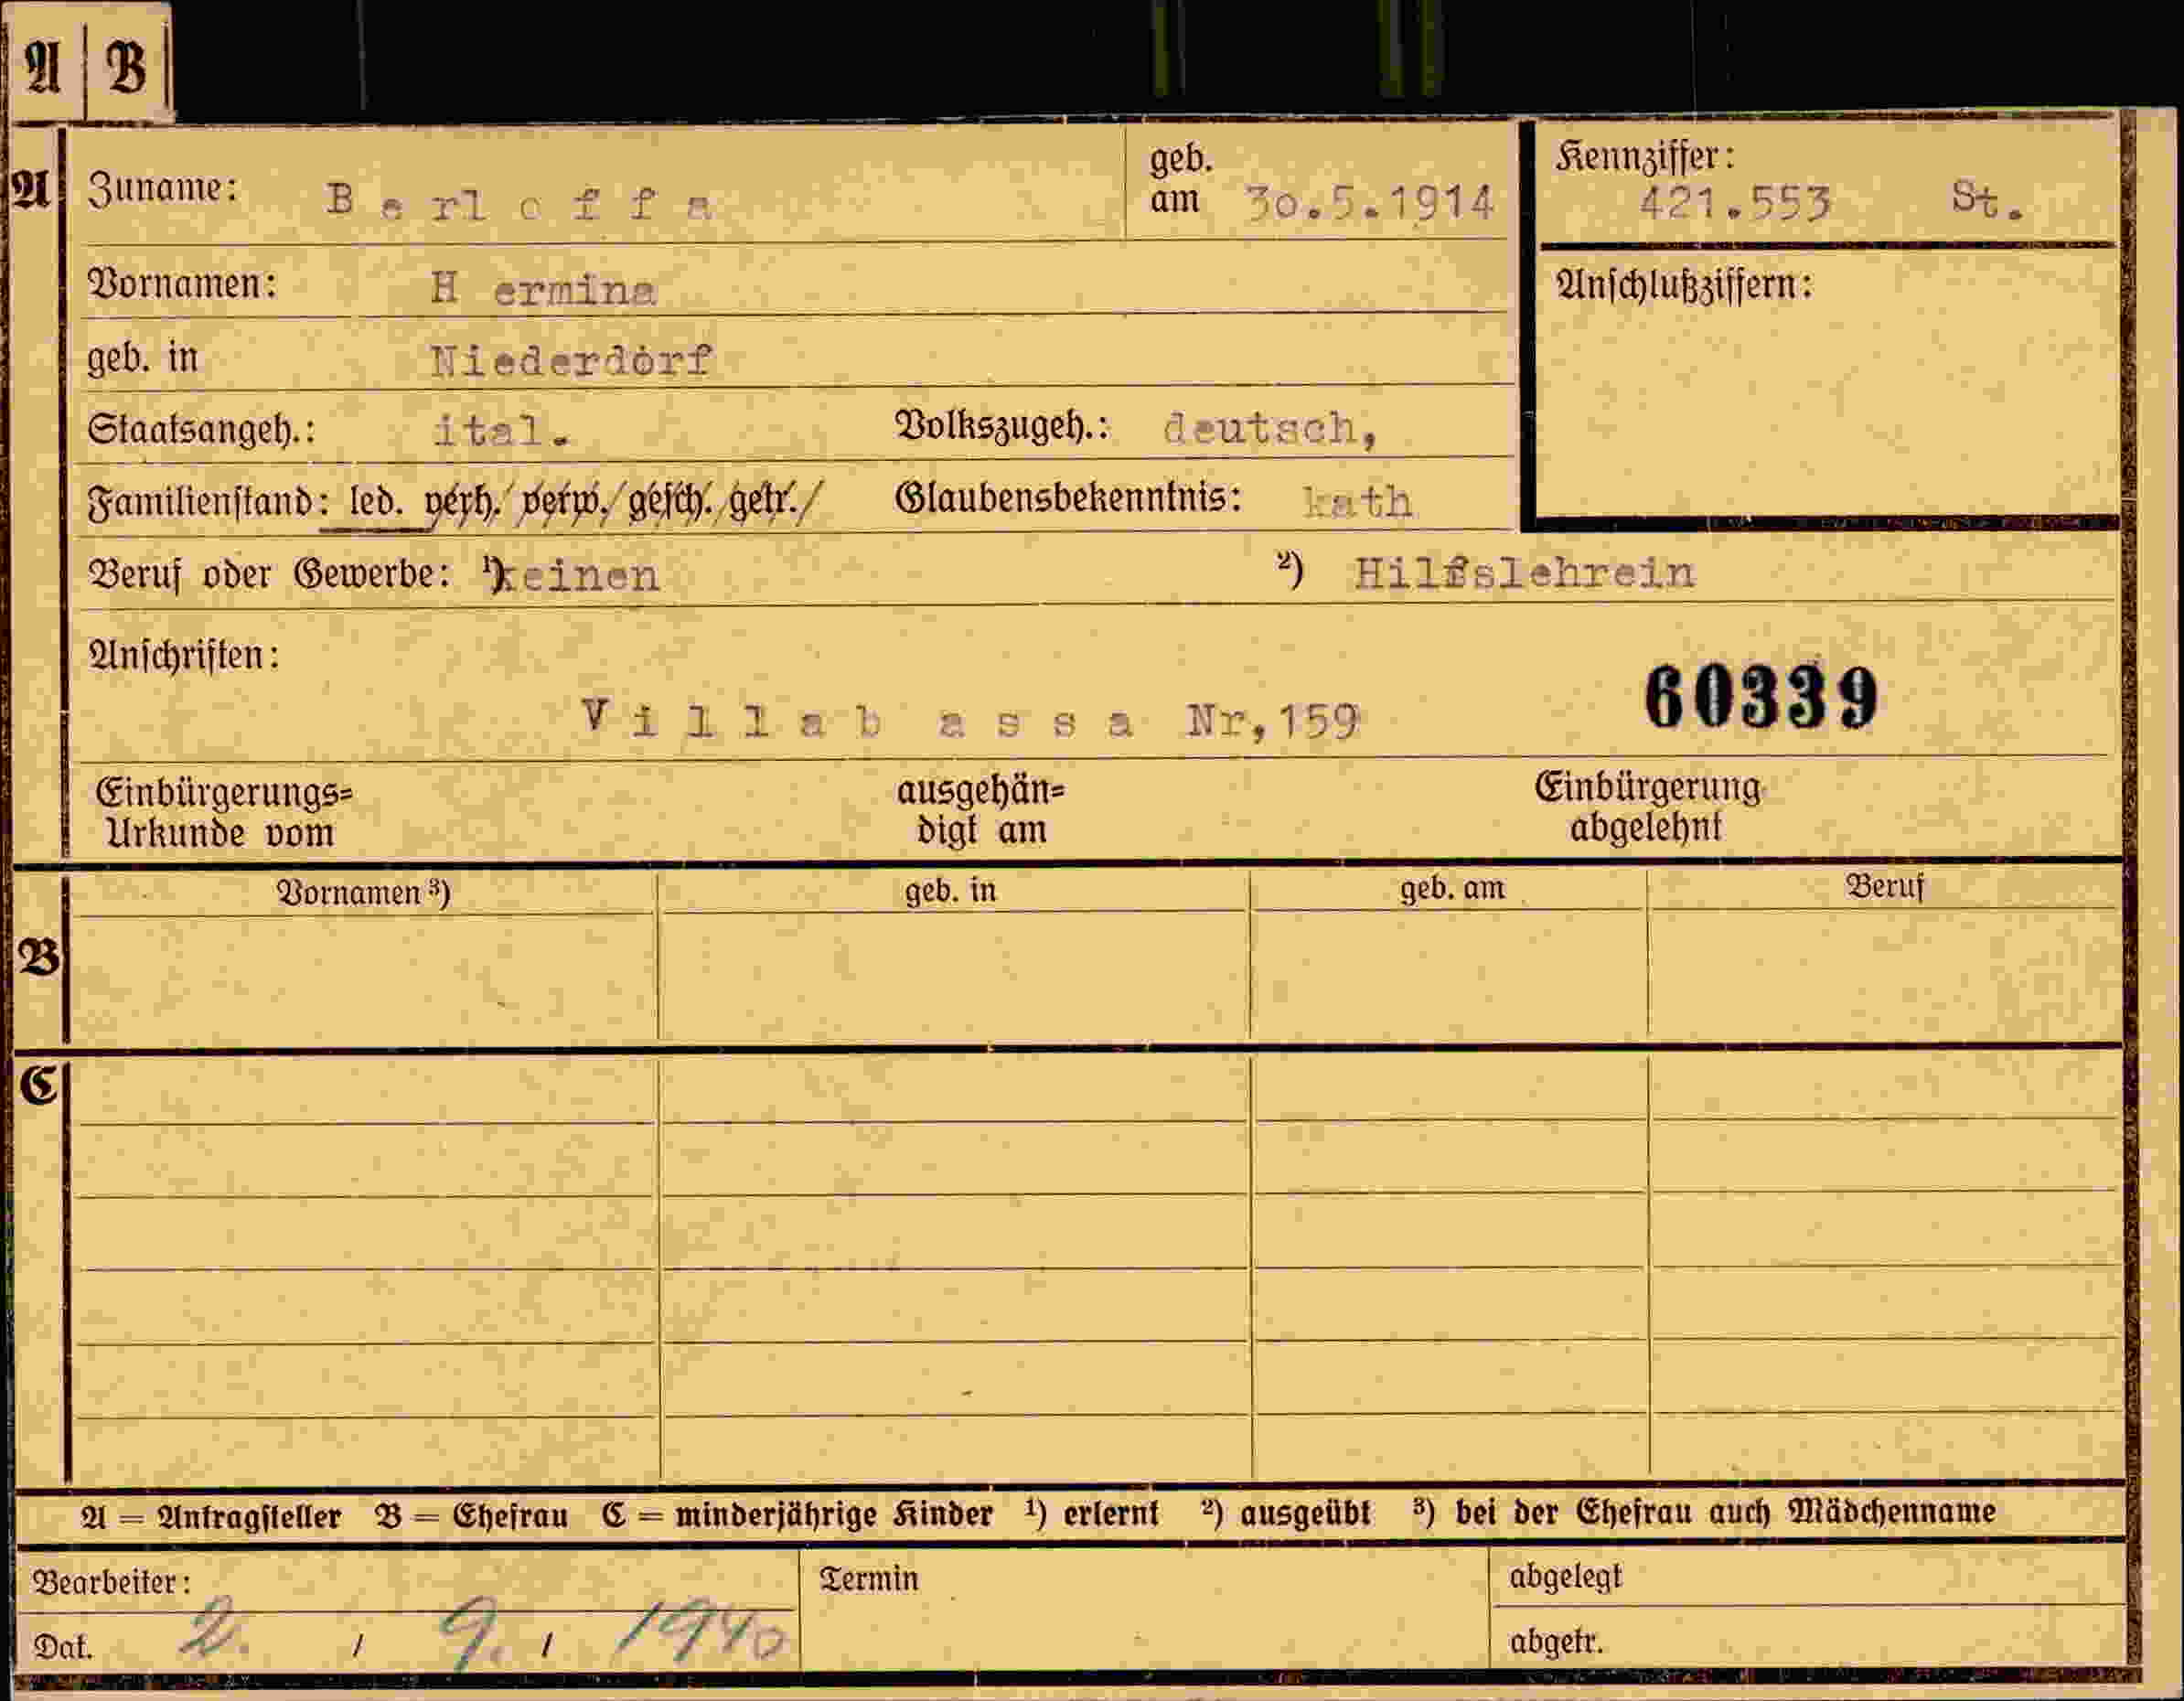 A B
A Zuname: Berloffa geb. am 30.5.1914 Kennziffer: 421.553 St.
Vornamen: H ermina Anschlußziffern:
geb. in Niederdorf
Staatsangeh.: ital. Volkszugeh.: deutsch,
Familienstand: led. verh./ verw./ gesch./ getr./ Glaubensbekenntnis: kath
Beruf oder Gewerbe: ¹) keinen ²) Hilfslehrein
Anschriften:
60339
Villab assa Nr,159
Einbürgerungs= ausgehän= Einbürgerung
Urkunde vom digt am abgelehnt
Vornamen ³) geb. in geb. am Beruf
B
C
A = Antragsteller B = Ehefrau C = minderjährige Kinder ¹) erlernt ²) ausgeübt ³) bei der Ehefrau auch Mädchenname
Bearbeiter: Termin abgelegt
Dat. 2. / 9. / 1940 abgetr.